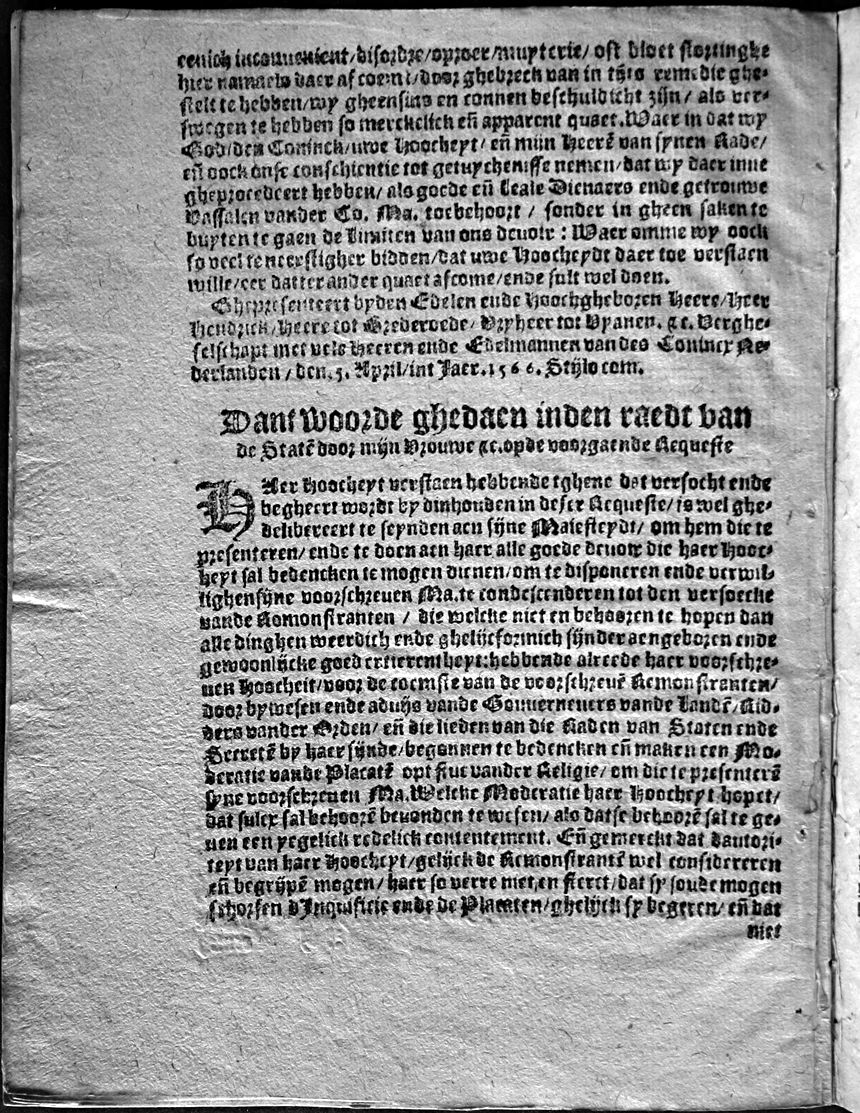 eenich inconuenient/disordre/oproer/muyterie/ oft bloet stortinghe
hier namaels daer af coemt/door ghebreck van in tijts remedie ghe-
stelt te hebben/wy gheensins en connen beschuldicht zijn/ als ver-
swegen te hebben so merckelick eñ apparent quaet. Waer in dat wy
God/den Coninck/uwe Hoocheyt/ eñ mijn Heerē van synen Rade/
eñ oock onse conschientie tot getuychenisse nemen/dat wy daer inne
gheprocedeert hebben/ als goede eñ leale Dienaers ende getrouwe
Vassalen vander Co. Ma. toebehoort / sonder in gheen saken te
buyten te gaen de limiten van ons deuoir : Waer omme wy oock
so veel te neerstigher bidden/dat uwe Hoocheydt daer toe verstaen
wille/eer datter ander quaet afcome/ende sult wel doen.
Ghepresenteert byden Edelen ende Hoochgheboren Heere/Heer
Hendrick/Heere tot Brederoede/ Vryheer tot Vyanen. &c. Verghe-
selschapt met vele Heeren ende Edelmannen van des Conincx Ne-
derlanden/den.5. April/int Jaer.1566. Stijlo com.
Dantwoorde ghedaen inden raedt van
de Statē door mijn Vrouwe &c.op de voorgaende Requeste
HAer Hoocheyt verstaen hebbende tghene dat versocht ende
begheert wordt by dinhouden in deser Requeste/is wel ghe-
delibereert te seynden aen sijne Maiesteydt/ om hem die te
presenteren/ ende te doen aen haer alle goede deuoir die haer Hooc-
heyt sal bedencken te mogen dienen/om te disponeren ende verwil-
lighen sijne voorschreuen Ma.te condescenderen tot den versoecke
vande Romonstranten / die welcke niet en behooren te hopen dan
alle dinghen weerdich ende ghelijcformich sijnder aengeboren ende
gewoonlijcke goedertierentheyt:hebbende alreede haer voorschre-
uen Hoocheit/voor de coemste van de voorschreuē Remonstranten/
door bywesen ende aduijs vande Gouuerneurs vande Landē/Rid-
ders vander Orden/ eñ die lieden van die Raden van Staten ende
Secretē by haer sijnde/begonnen te bedencken eñ maken een Mo-
deratie vande Placatē opt stuc vander Religie/ om die te presenterē
syne voorschreuen Ma.Welcke Moderatie haer Hoocheyt hopet/
dat sulcx sal behoorē beuonden te wesen/ als datse behoorē sal te ge-
uen een yegelick redelick contentement. Eñ gemerckt dat dautori-
teyt van haer Hoocheyt/gelijck de Remonstrantē wel considereren
eñ begrijpē mogen/ haer so verre niet en strect/dat sy soude mogen
schorsen d'Inquisitie ende de Placaten/ghelijck sy begeren/ eñ dat
niet